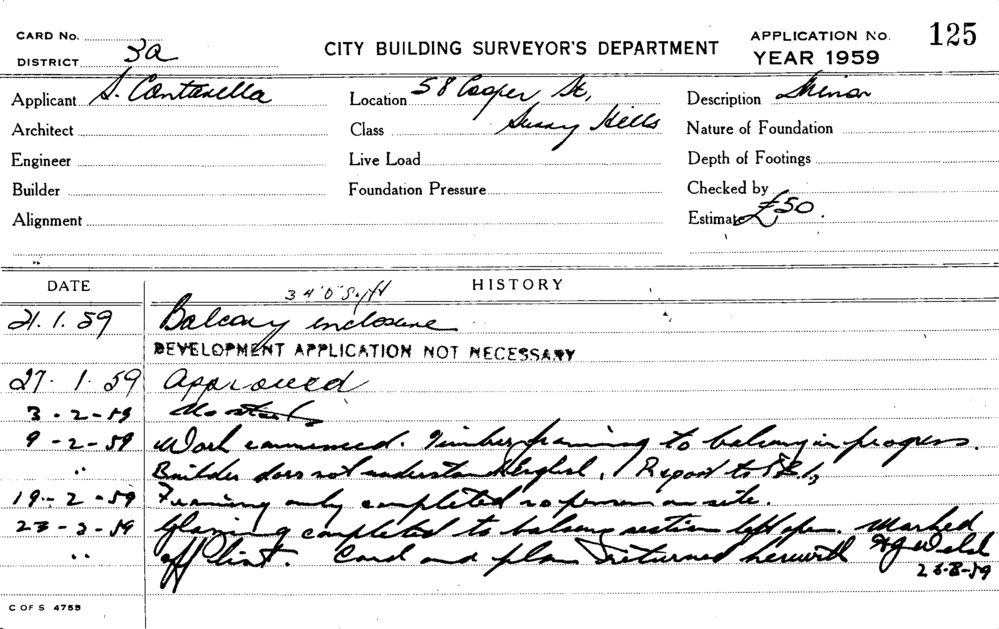 CARD No.
DISTRICT 3a
CITY BUILDING SURVEYOR'S DEPARTMENT
APPLICATION No. 125
YEAR 1959
Applicant S. Contarella
Location 58 Cooper St,
Description Minor
Architect
Class Surry Hills
Nature of Foundation
Engineer
Live Load
Depth of Footings
Builder
Foundation Pressure
Checked by
Alignment
Estimate £50.
DATE
HISTORY
340 Sq. ft
21. 1. 59 Balcony enclosure
DEVELOPMENT APPLICATION NOT NECESSARY
27. 1. 59 Approved
3-2-59 No start
9-2-59 Work commenced. Timber framing to balcony in progress.
" Builder does not understand English. Report to
19-2-59 Framing only completed no person on site.
23-3-59 Glazing completed to balcony section left open. Marked
" off list. Card and plan returned herewith
23-3-59
C OF S 4755